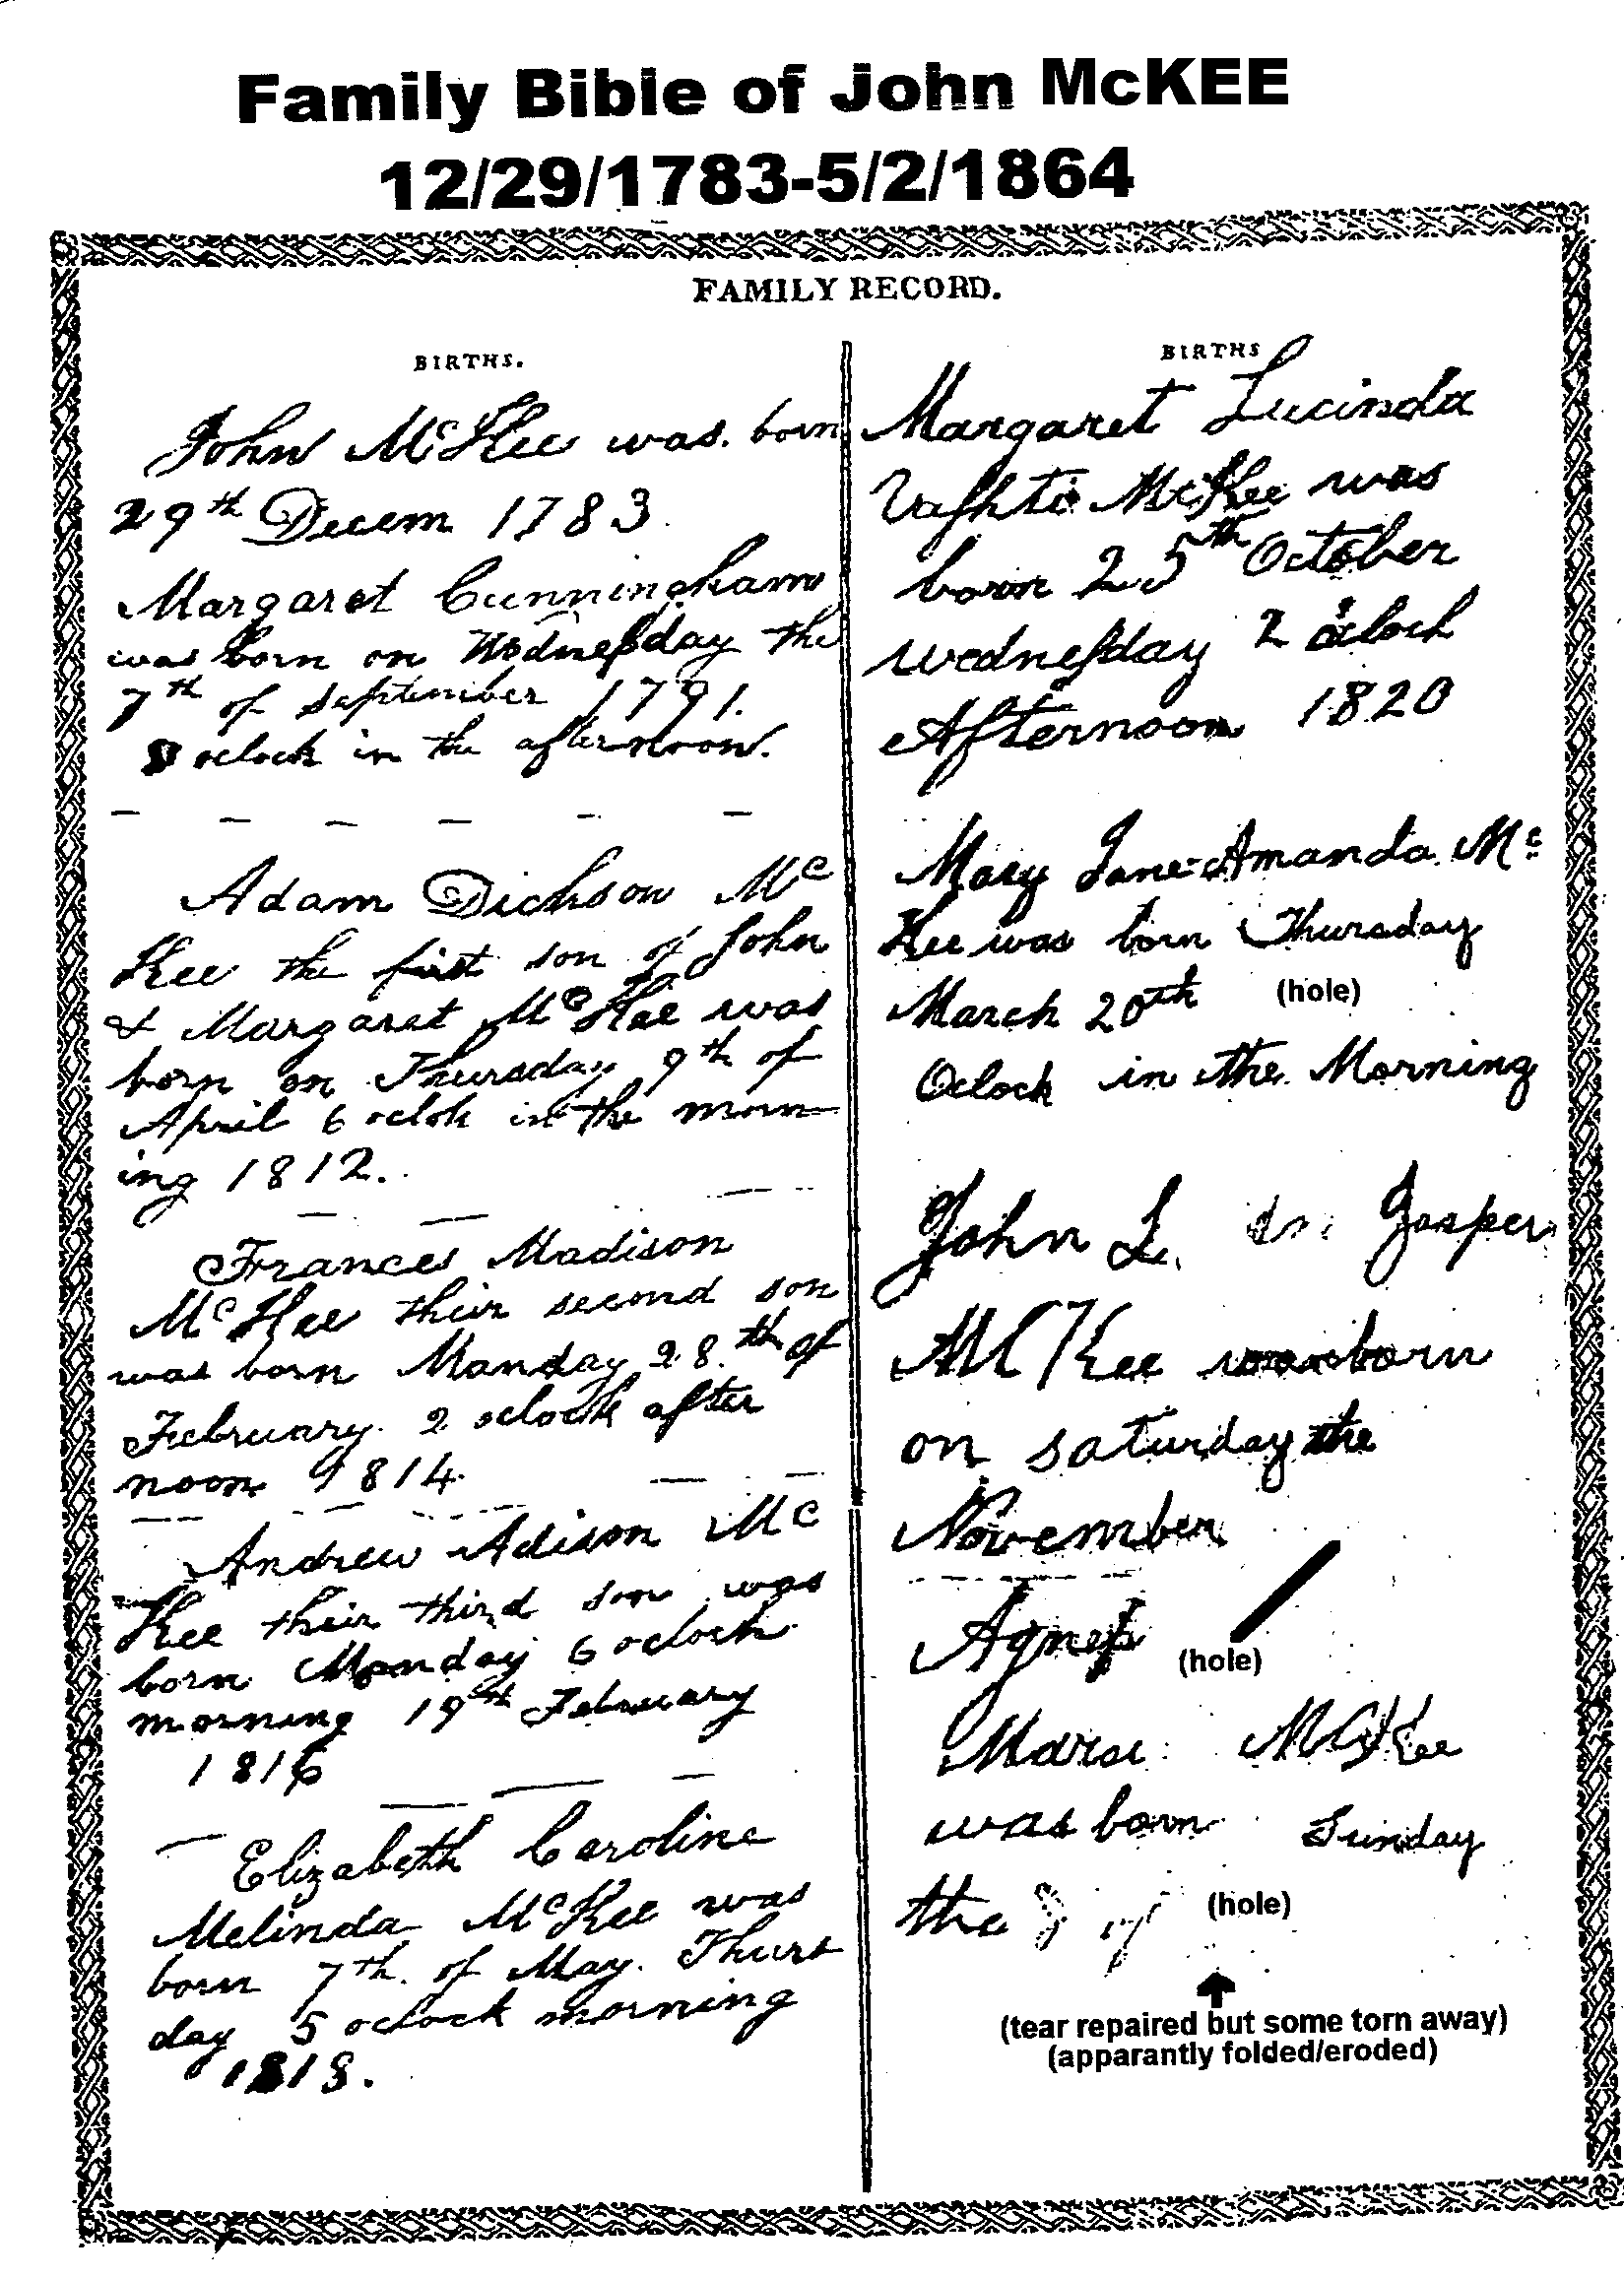 Family Bible of John McKEE
12/29/1783-5/2/1864
FAMILY RECORD.
BIRTHS.
John McKee was born
29th Decem 1783
Margaret Cunningham
was born on Wednesday the
7th of september 1791.
oclock in the afternoon.
Adam Dickson Mc
Kee the first son of John
& Margaret McKee was
born on Thursday 9th of
April 6 oclok in the morn
ing 1812.
Frances Madison
McKee their second son
was born Monday 28th of
February 2 oclock after
noon 1814
Andrew Adison Mc
Kee their third son was
born Monday 6 oclock
morning 19th February
1816
Elizabeth Caroline
Melinda McKee was
born 7th of May. Thurs
day 5 oclock morning
1818.
BIRTHS
Margaret Lucinda
Vashti McKee was
born 25th October
wednesday 2 oclock
Afternoon 1820
Mary Jane Amanda Mc
Kee was born Thursday
March 20th (hole)
Oclock in the Morning
John L. Jasper
McKee was born
on saturday the
November
Agness (hole)
McKee
was born Sunday
the (hole)
(tear repaired but some torn away)
(apparantly folded/eroded)